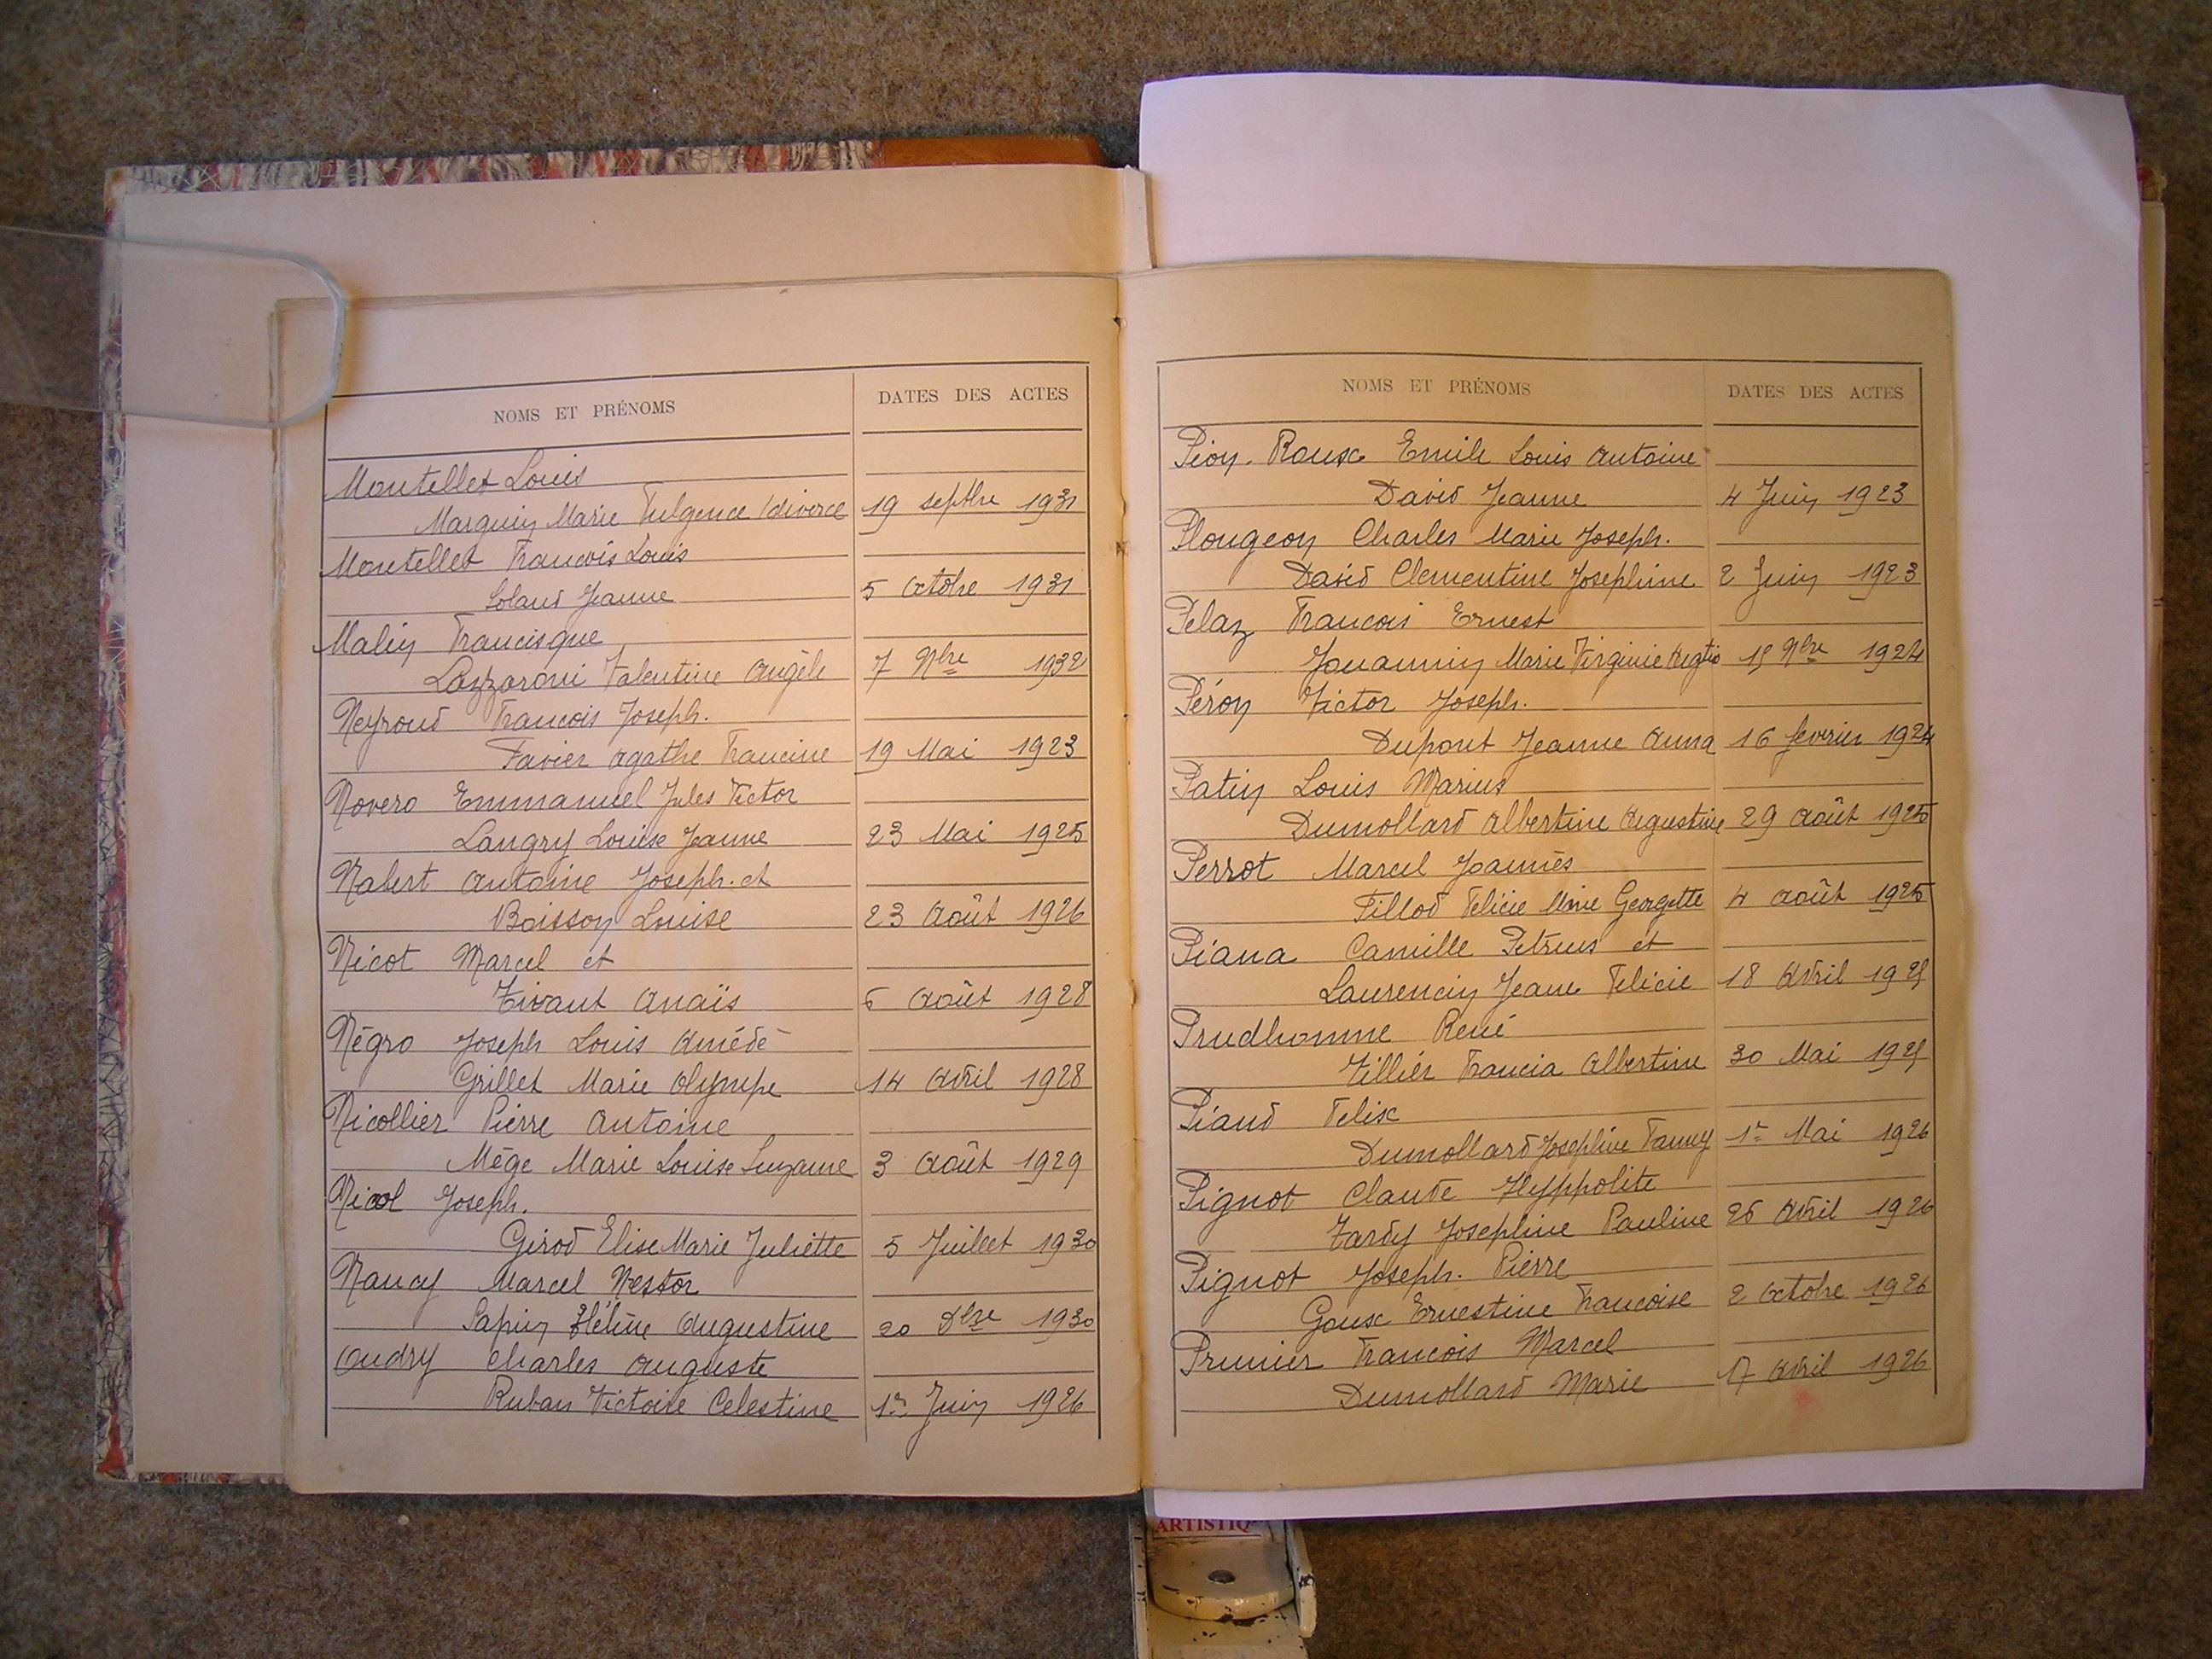 NOMS ET PRÉNOMS DATES DES ACTES
Montellet Louis
Marguin Marie Fulgence (divorce 19 septbre 1931
Montellet Francois Louis
Loland Jeanne 5 octobre 1931
Malin Francisque
Lazzaroni Valentine Angèle 7 Nbre 1932
Neyroud Francois Joseph.
Favier Agathe Francine 19 Mai 1923
Novero Emmanuel Jules Victor
Langry Louise Jeanne 23 Mai 1925
Nabert Antoine Joseph. et
Boisson Louise 23 Août 1926
Nicot Marcel et
Tivant Anaïs 6 Août 1928
Négro Joseph Louis Amédé
Grillet Marie Olympe 14 Avril 1928
Nicollier Pierre Antoine
Mège Marie Louise Suzanne 3 Août 1929
Nicol Joseph.
Girod Elise Marie Juliette 5 Juillet 1930
Nancy Marcel Nestor
Papin Hélène Augustine 20 Dbre 1930
Oudry Charles Auguste
Ruban Victoire Celestine 1er Juin 1926
NOMS ET PRÉNOMS DATES DES ACTES
Péon. Roux Emile Louis Antoine
David Jeanne 4 Juin 1923
Plongeon Charles Marie Joseph.
David Clementine Josephine 2 Juin 1923
Pelaz Francois Ernest
Jouannin Marie Virginie 15 Nbre 1924
Péron Victor Joseph.
Dupont Jeanne Anna 16 fevrier 1924
Patin Louis Marius
Dumollard Albertine Augustine 29 Août 1925
Perrot Marcel Joannès
Fillod Felicie Mmie Georgette 4 Août 1925
Piana Camille Petrus et
Laurencin Jeanne Felicie 18 Avril 1925
Prudhomme René
Tillier Francia Albertine 30 Mai 1925
Piaud Felix
Dumollard Josephine Fanny 1er Mai 1926
Pignot Claude Hyppolite
Tardy Josephine Pauline 26 Avril 1926
Pignot Joseph. Pierre
Goux Ernestine Francoise 2 Octobre 1926
Prunier Francois Marcel
Dumollard Marie 17 Avril 1926
ARTISTIQ